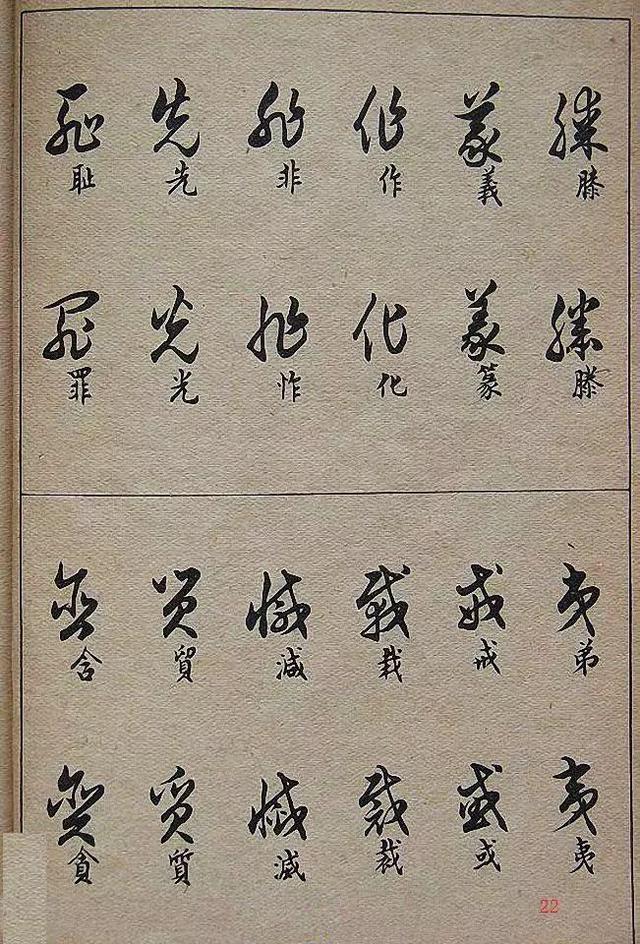 膝 滕
義 篆
作 化
非 怍
先 光
耻 罪
弟 夷
戒 或
栽 裁
減 滅
貿 質
含 貪
22